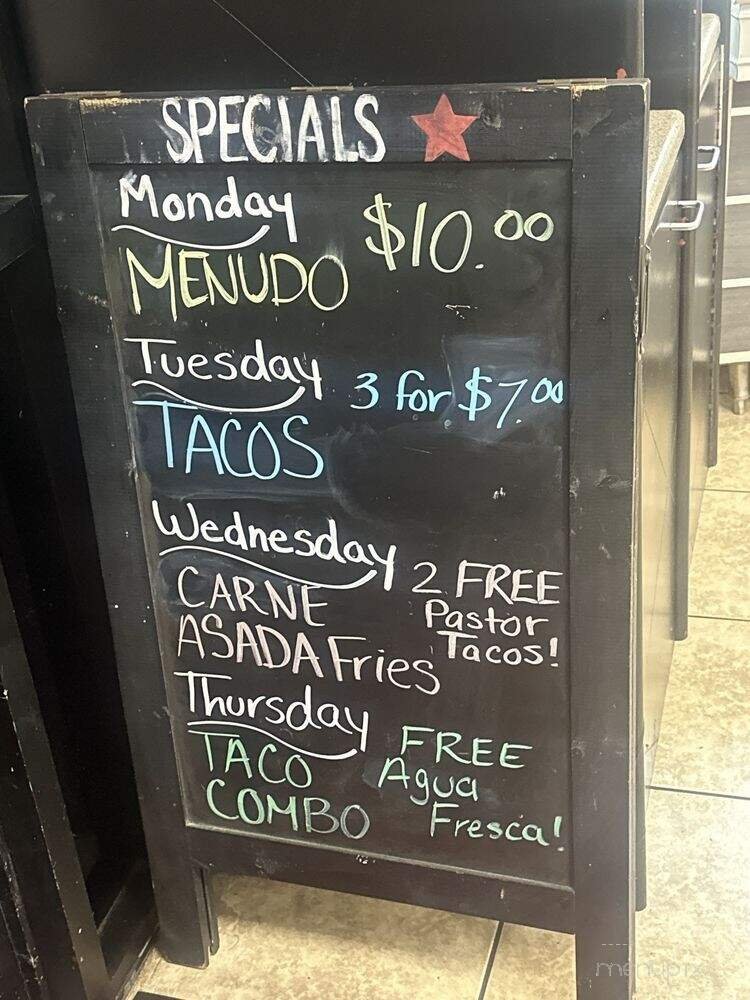 SPECIALS
Monday
$10.00
MENUDO
Tuesday
3 for $7.00
TACOS
Wednesday
2 FREE
Pastor
Tacos!
CARNE
ASADA Fries
Thursday
FREE
Agua
Fresca!
TACO
COMBO